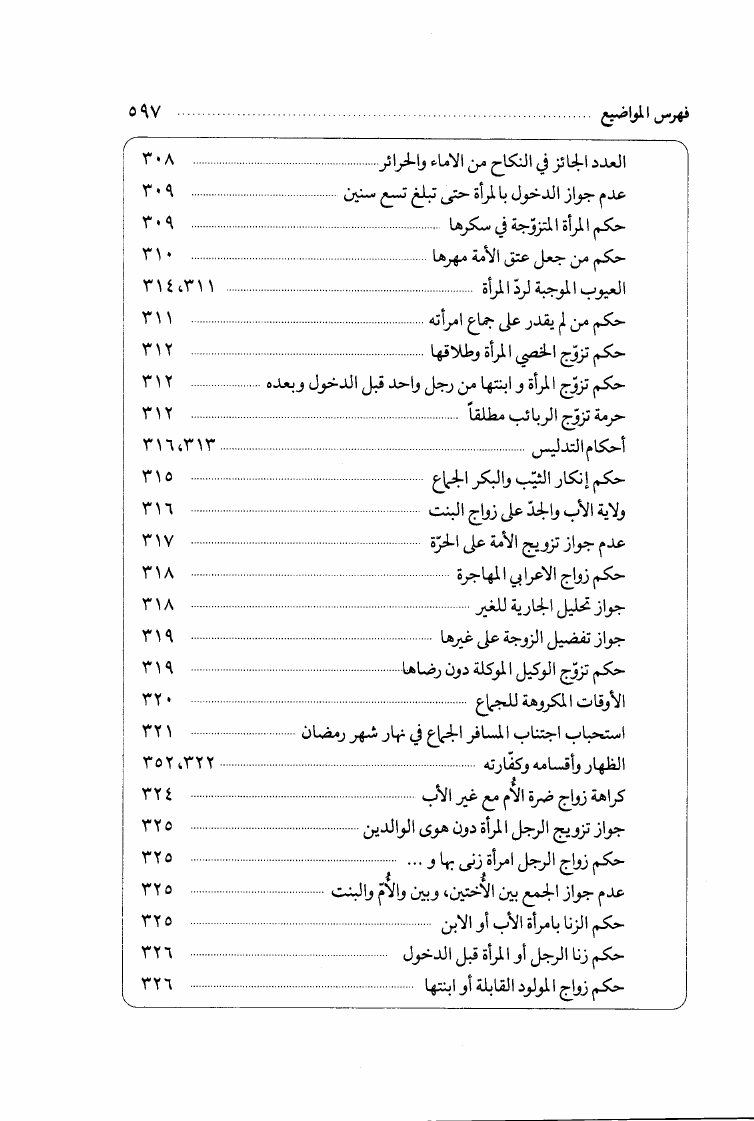 فهرس المواضيع ........ ٥٩٧
العدد الجائز في النكاح من الاماء والحرائر ........ ٣٠٨
عدم جواز الدخول بالمرأة حتى تبلغ تسع سنين ........ ٣٠٩
حكم المرأة المتزوّجة في سكرها ........ ٣٠٩
حكم من جعل عتق الأمة مهرها ........ ٣١٠
العيوب الموجبة لردّ المرأة ........ ٣١١، ٣١٤
حكم من لم يقدر على جماع امرأته ........ ٣١١
حكم تزوّج الخصي المرأة وطلاقها ........ ٣١٢
حكم تزوّج المرأة و ابنتها من رجل واحد قبل الدخول وبعده ........ ٣١٢
حرمة تزوّج الربائب مطلقاً ........ ٣١٢
أحكام التدليس ........ ٣١٣، ٣١٦
حكم إنكار الثيّب والبكر الجماع ........ ٣١٥
ولاية الأب والجدّ على زواج البنت ........ ٣١٦
عدم جواز تزويج الأمة على الحرّة ........ ٣١٧
حكم زواج الاعرابي المهاجرة ........ ٣١٨
جواز تحليل الجارية للغير ........ ٣١٨
جواز تفضيل الزوجة على غيرها ........ ٣١٩
حكم تزوّج الوكيل الموكلة دون رضاها ........ ٣١٩
الأوقات المكروهة للجماع ........ ٣٢٠
استحباب اجتناب المسافر الجماع في نهار شهر رمضان ........ ٣٢١
الظهار وأقسامه وكفّارته ........ ٣٢٢، ٣٥٢
كراهة زواج ضرة الأُم مع غير الأب ........ ٣٢٤
جواز تزويج الرجل المرأة دون هوى الوالدين ........ ٣٢٥
حكم زواج الرجل امرأة زنى بها و ... ........ ٣٢٥
عدم جواز الجمع بين الأُختين، وبين والأُمّ والبنت ........ ٣٢٥
حكم الزنا بامرأة الأب أو الابن ........ ٣٢٥
حكم زنا الرجل أو المرأة قبل الدخول ........ ٣٢٦
حكم زواج المولود القابلة أو ابنتها ........ ٣٢٦